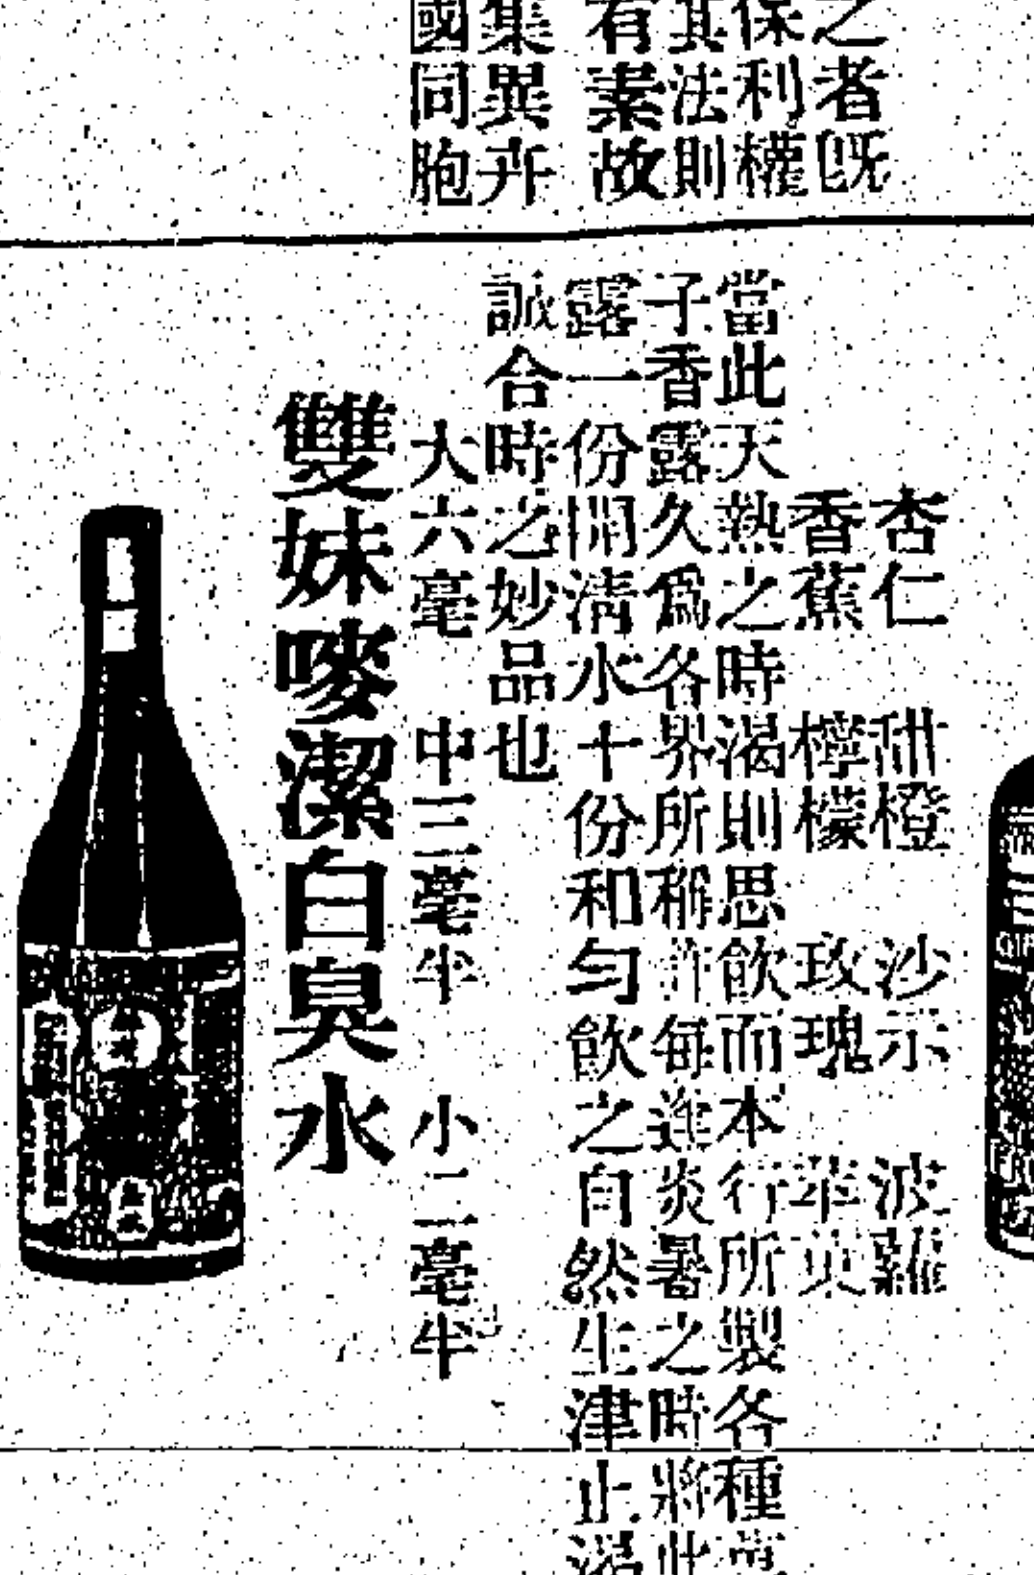 之者既
保利權
其法則
有素故
集異卉
國同胞
杏仁 甜橙 沙示 波羅
香蕉 檸檬 玫瑰 苹菓
當此天熱之時渴則思飲而本行所製各種菓
子香露久爲各界所稱許每逢炎暑之時將此
露一份開清水十份和勻飲之自然生津止渴
誠合時之妙品也
大六毫 中三毫半 小二毫半
雙妹嘜潔白臭水